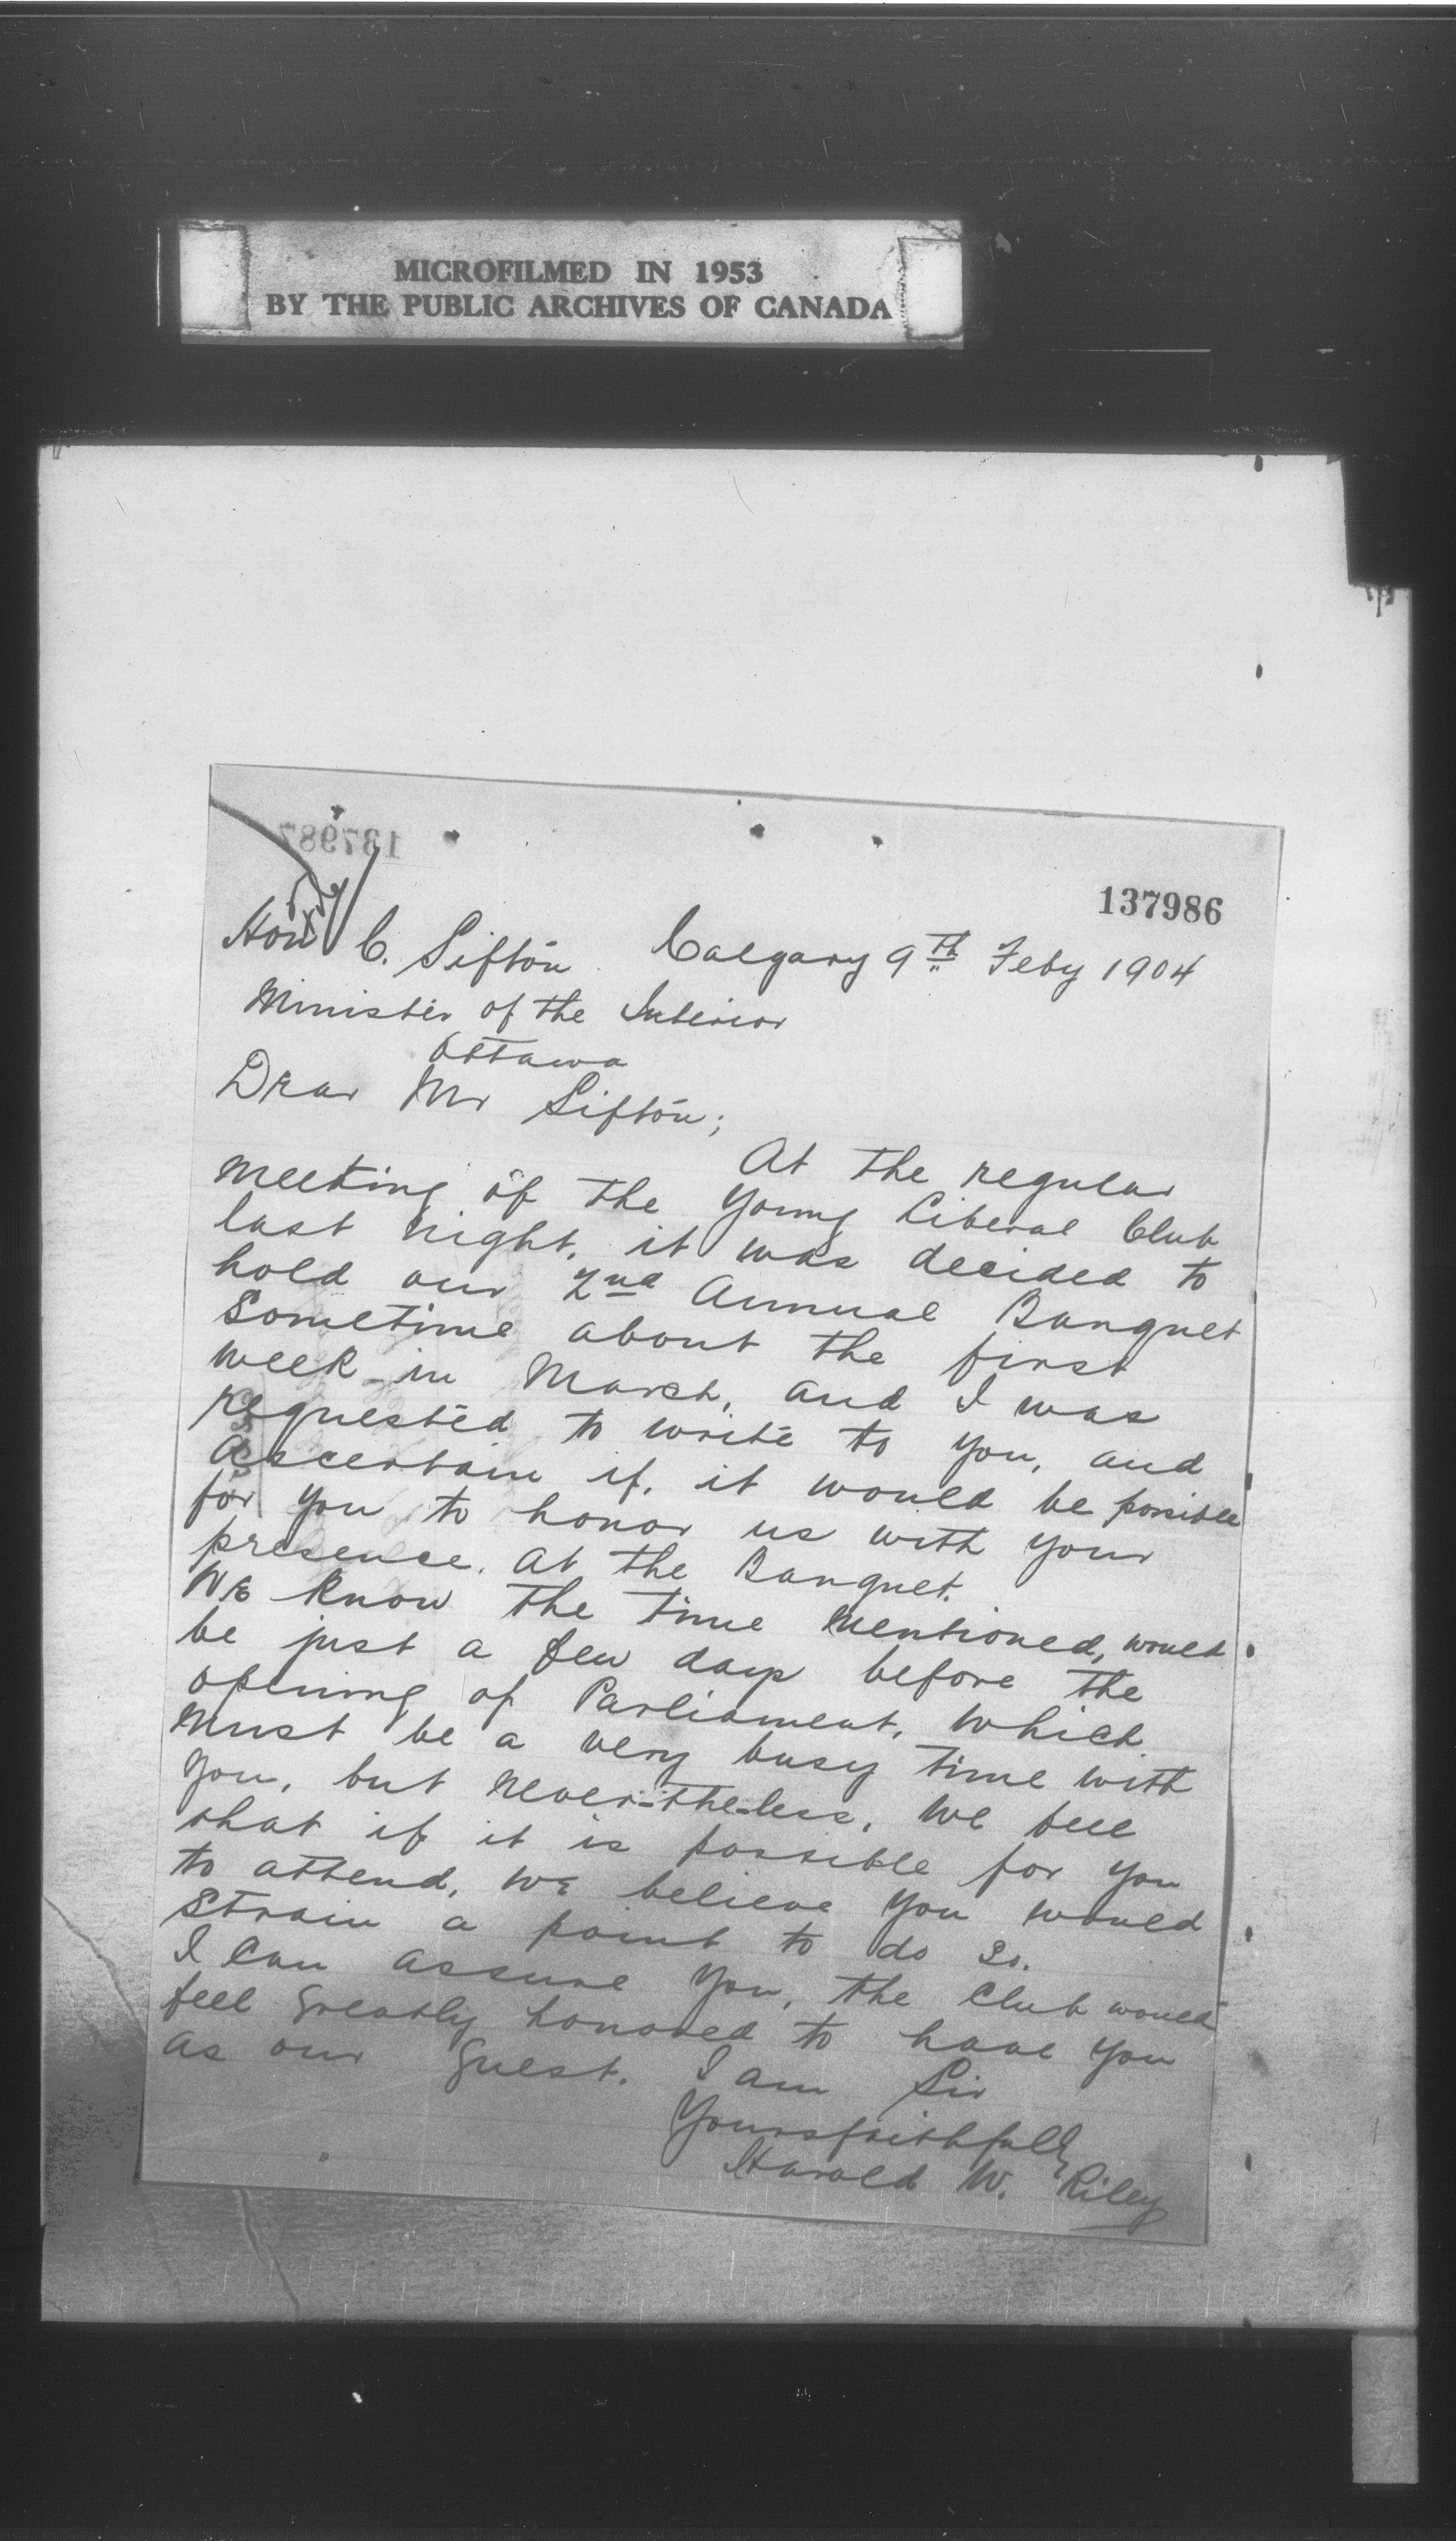 MICROFILMED IN 1953
BY THE PUBLIC ARCHIVES OF CANADA
137987
137986
Hon C. Sifton Calgary 9th Feby 1904
Minister of the Interior
Ottawa
Dear Mr Sifton;
At the regular
meeting of the Young Liberal Club
last night, it was decided to
hold our 2nd Annual Banquet
Sometime about the first
week in March, and I was
requested to write to you, and
ascertain if, it would be possible
for you to honor us with your
presence, at the Banquet.
We know the time mentioned, would
be just a few days before the
opening of Parliament, which
must be a very busy time with
you, but never-the-less, we feel
that if it is possible for you
to attend, we believe you would
strain a point to do so.
I can assure you, the Club would
feel greatly honored to have you
as our guest. I am Sir
Yours faithfully
Harold W. Riley